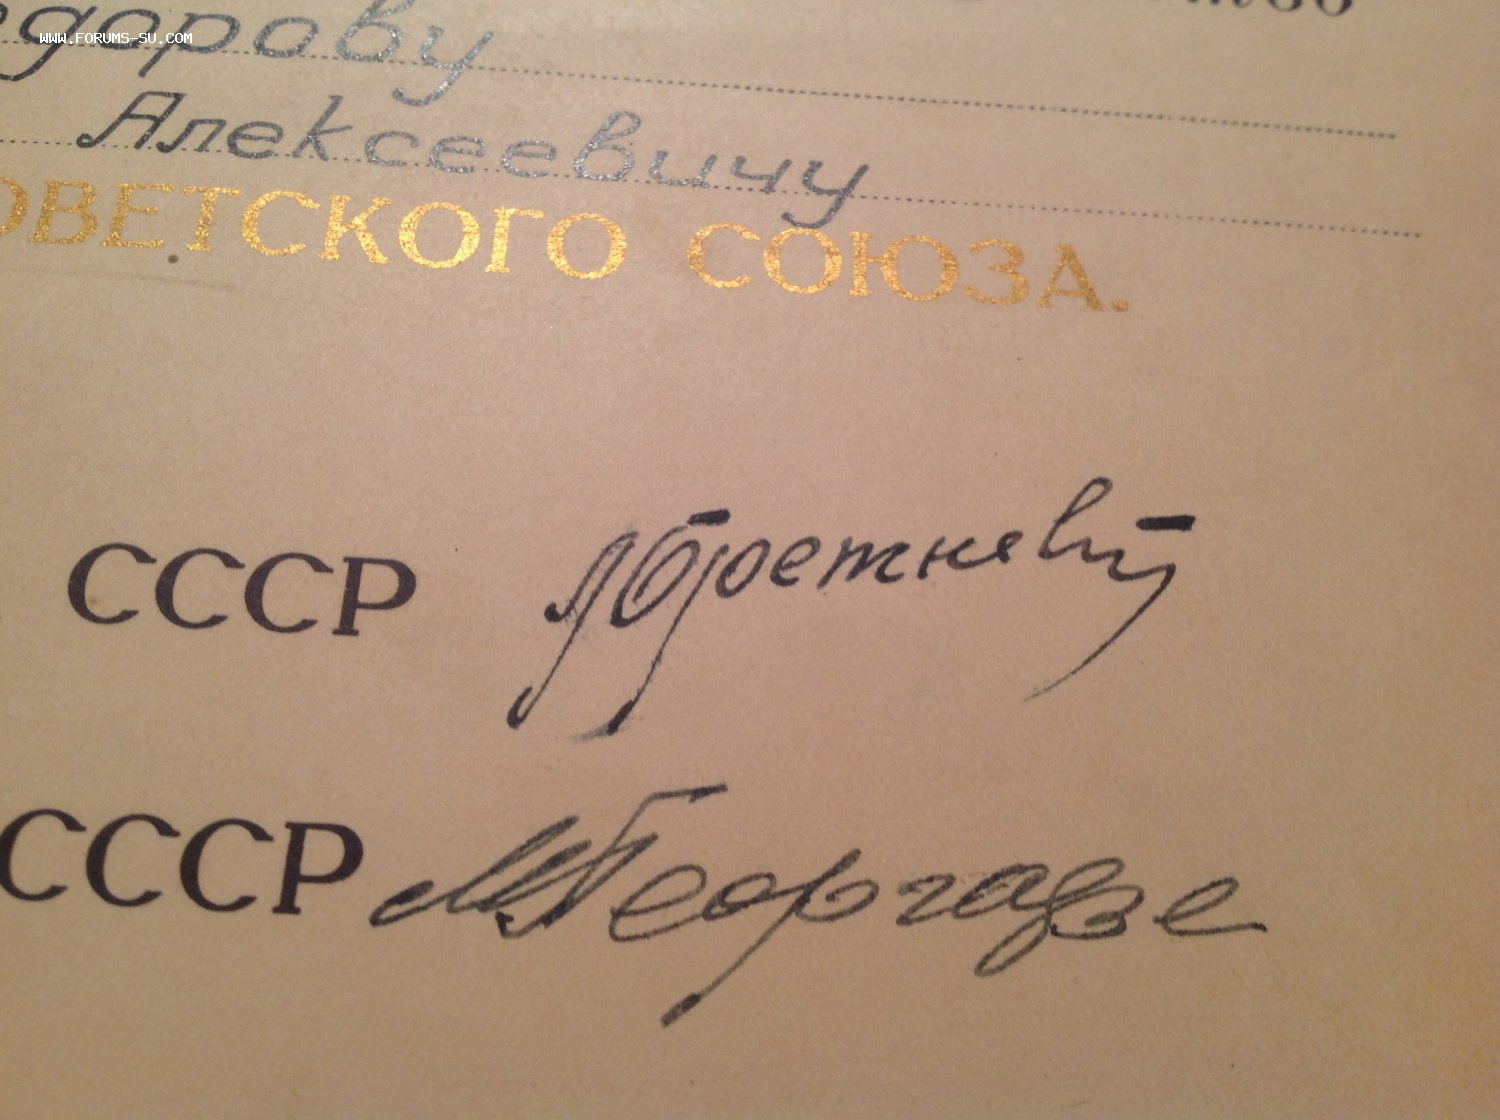 WWW.FORUMS-SU.COM
дорову
Алексеевичу
ОВЕТСКОГО СОЮЗА.
СССР Л Брежнев
СССР М Георгадзе